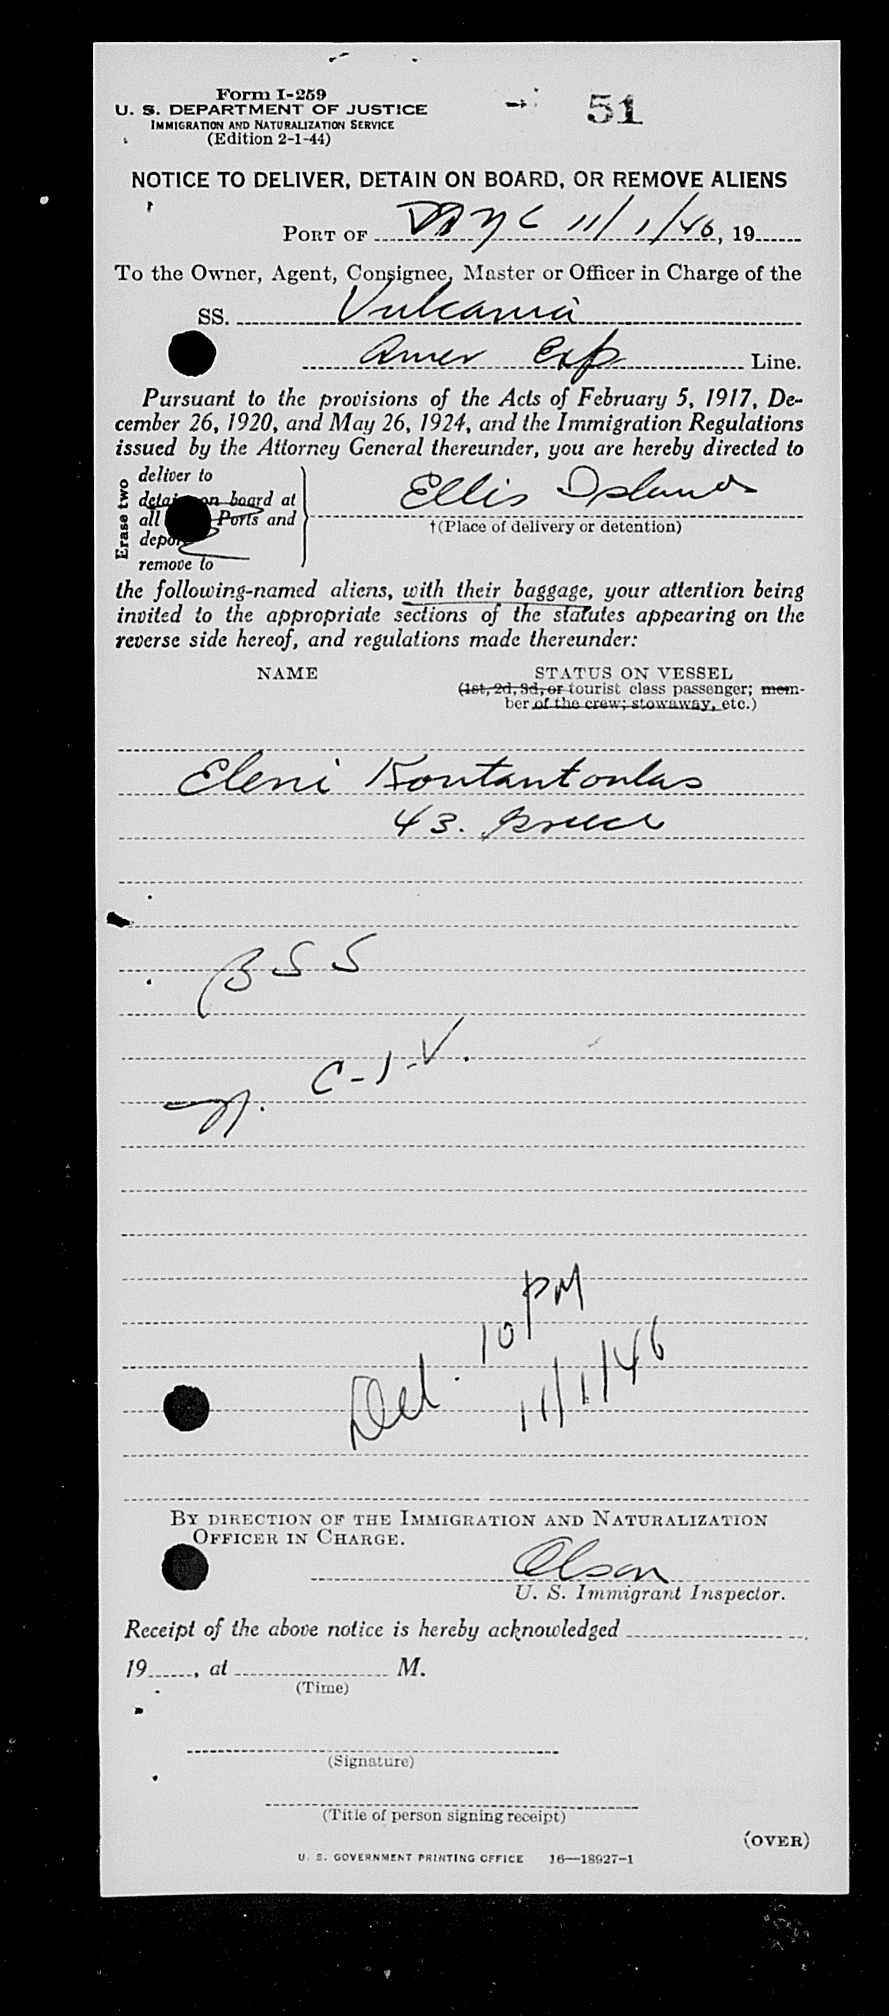 Form I-259
51
U. S. DEPARTMENT OF JUSTICE
IMMIGRATION AND NATURALIZATION SERVICE
(Edition 2-1-44)
NOTICE TO DELIVER, DETAIN ON BOARD, OR REMOVE ALIENS
PORT OF NYC 11/1/46, 19
To the Owner, Agent, Consignee, Master or Officer in Charge of the
SS. Vulcania
Amer Exp Line.
Pursuant to the provisions of the Acts of February 5, 1917, De-
cember 26, 1920, and May 26, 1924, and the Immigration Regulations
issued by the Attorney General thereunder, you are hereby directed to
Erase two
deliver to
on board at
all Ports and
remove to
Ellis Island
†(Place of delivery or detention)
the following-named aliens, with their baggage, your attention being
invited to the appropriate sections of the statutes appearing on the
reverse side hereof, and regulations made thereunder:
NAME
STATUS ON VESSEL
(1st, 2d, 3d, or tourist class passenger; mem-
ber of the crew; stowaway, etc.)
Eleni Kontantoulas
43. Greece
BSS
C-I-V.
Del. 10 PM
11/1/46
BY DIRECTION OF THE IMMIGRATION AND NATURALIZATION
OFFICER IN CHARGE.
Olson
U. S. Immigrant Inspector.
Receipt of the above notice is hereby acknowledged
19, at M.
(Time)
(Signature)
(Title of person signing receipt)
(OVER)
U. S. GOVERNMENT PRINTING OFFICE 16—18927-1